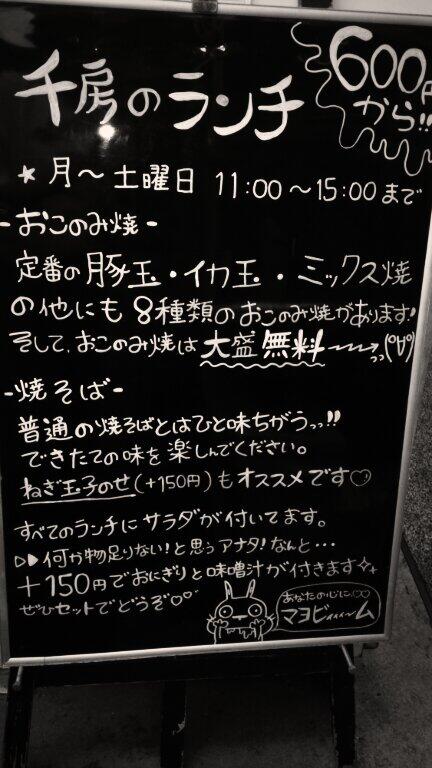 千房のランチ
600円
から!!
★月～土曜日 11:00～15:00まで
-おこのみ焼-
定番の豚玉・イカ玉・ミックス焼
の他にも8種類のおこのみ焼があります!
そして、おこのみ焼は大盛無料
-焼そば-
普通の焼そばとはひと味ちがうっっ!!
できたての味を楽しんでください。
ねぎ玉子のせ(+150円)もオススメです♡
すべてのランチにサラダが付いてます。
▷▶何か物足りない!と思うアナタ!なんと…
+150円でおにぎりと味噌汁が付きます
ぜひセットでどうぞ♡♡
あなたの心に、♡♡
マヨビィィィ～ム